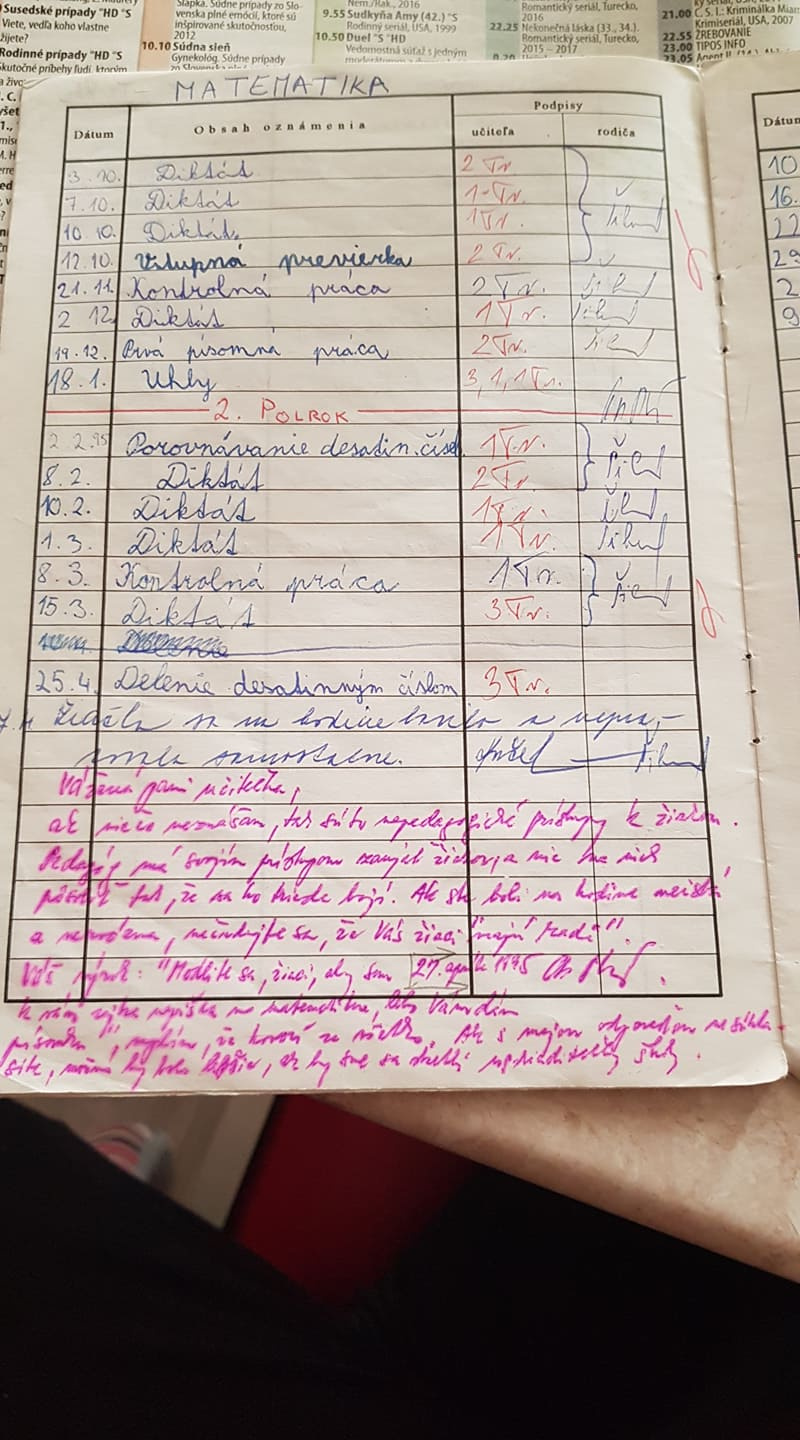 Susedské prípady "HD "S
Viete, vedľa koho vlastne
žijete?
Rodinné prípady "HD "S
Skutočné príbehy ľudí, ktorým
Slapka. Súdne prípady zo Slo-
venska plné emócií, ktoré sú
inšpirované skutočnosťou,
2012
10.10 Súdna sieň
Gynekológ. Súdne prípady
Nem./Rak., 2016
9.55 Sudkyňa Amy (42.) "S
Rodinný seriál, USA, 1999
10.50 Duel "S "HD
Vedomostná súťaž s jedným
Romantický seriál, Turecko,
2016
22.25 Nekonečná láska (33., 34.).
Romantický seriál, Turecko,
2015 – 2017
21.00 C. S. I.: Kriminálka Miami
Krimiseriál, USA, 2007
22.55 ŽREBOVANIE
23.00 TIPOS INFO
23.05
MATEMATIKA
Dátum Obsah oznámenia Podpisy
učiteľa rodiča
3.10. Diktát 2 Tr.
7.10. Diktát 1 Tr.
10.10. Diktát 1 Tr.
12.10. Vstupná previerka 2 Tr.
21.11. Kontrolná práca 2 Tr.
2 12. Diktát 1 Tr.
19.12. Prvá písomná práca 2 Tr.
18.1. Uhly 3, 1, 1 Tr.
2. POLROK
2 2.95 Porovnávanie desatin. čísel 1 Tr.
8.2. Diktát 2 Tr.
10.2. Diktát 1 Tr.
1.3. Diktát 1 Tr.
8.3. Kontrolná práca 1 Tr.
15.3. Diktát 3 Tr.
25.4. Delenie desatinným číslom 3 Tr.
sa na hodine a nepra-
covala samostatne.
Vážená pani učiteľka,
ak niečo neznášam, tak sú to nepedagogické prístupy k žiakom.
Pedagóg má svojím prístupom zaujať žiakov, a nie na nich
pôsobiť tak, že sa ho trieda bojí. Ak ste boli na hodine
a nervózna, nečudujte sa, že Vás žiaci "majú radi".
Váš výrok: "Modlite sa, žiaci, aby som 27. apríla 1995
k vám zajtra neprišla na matematiku, lebo Vám dám
písomku", myslím, že hovorí za všetko. Ak s mojou odpoveďou nesúhla-
síte, možno by bolo lepšie, ak by sme sa stretli u riaditeľky školy.
Dátum
10
16.
22
29
2
9